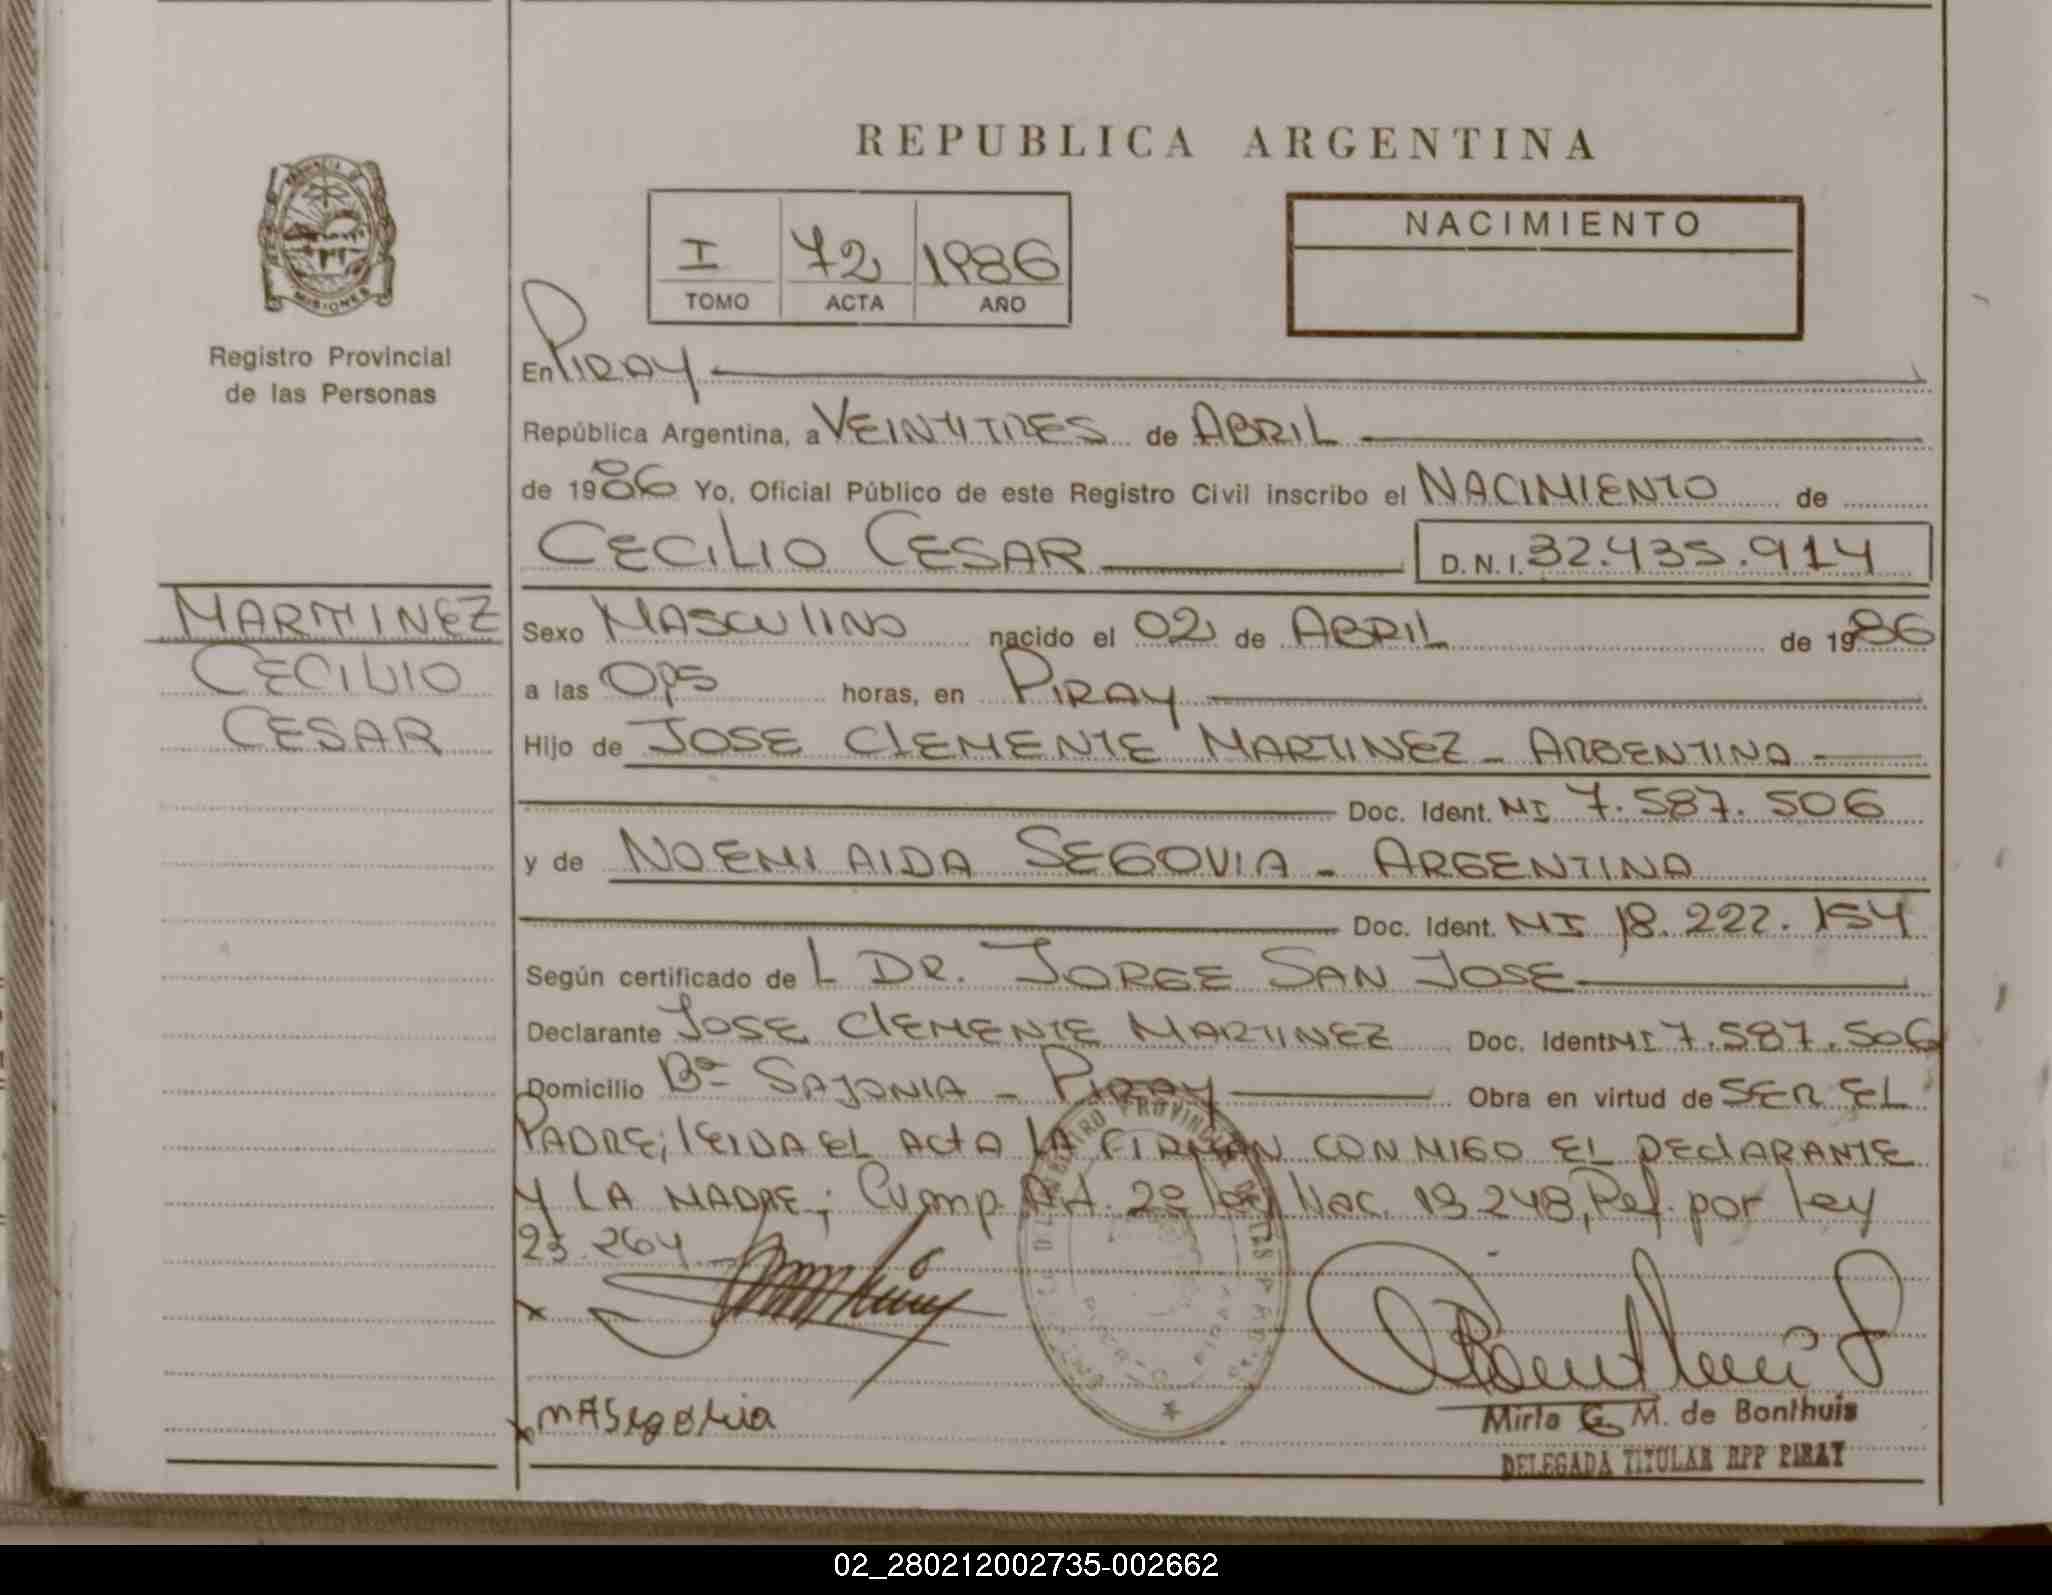 REPUBLICA ARGENTINA
PROVINCIA DE
MISIONES
Registro Provincial
de las Personas
I 72 1986
TOMO ACTA AÑO
NACIMIENTO
En PIRAY
República Argentina, a VEINTITRES de ABRIL
de 1986 Yo, Oficial Público de este Registro Civil inscribo el NACIMIENTO de
CECILIO CESAR D.N.I. 32.435.914
MARTINEZ
CECILIO
CESAR
Sexo MASCULINO nacido el 02 de ABRIL de 1986
a las horas, en PIRAY
Hijo de JOSE CLEMENTE MARTINEZ - ARGENTINA
Doc. Ident. MI 7.587.506
y de NOEMI AIDA SEGOVIA - ARGENTINA
Doc. Ident. MI 18.222.154
Según certificado de L DR. JORGE SAN JOSE
Declarante JOSE CLEMENTE MARTINEZ Doc. Ident. MI 7.587.506
Domicilio Bº SAJONIA - PIRAY Obra en virtud de SER EL
PADRE; LEIDA EL ACTA LA FIRMAN CONMIGO EL DECLARANTE
Y LA MADRE; Cump. Art. 2º ley Nac. 13.248, Ref. por ley
23.264
x
x MASegovia
Mirta G. M. de Bonthuis
DELEGADA TITULAR RPP PIRAY
02_280212002735-002662